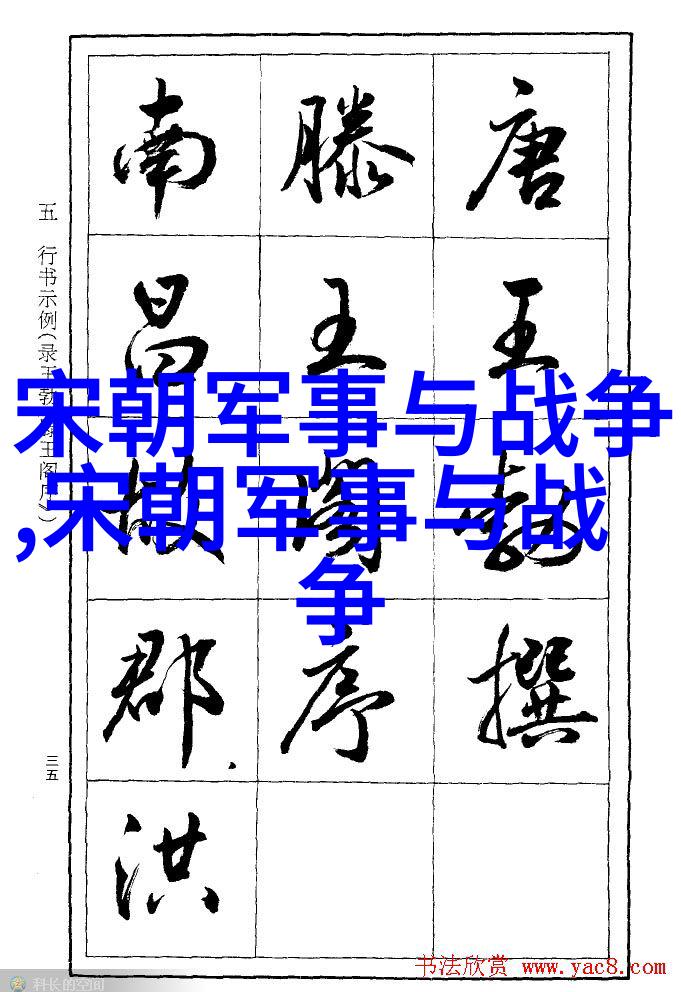 唐王勃撰
滕王阁序
南昌故郡洪
五 行书示例(录王勃《滕王阁序》)
三五
宋朝军事与战争
,宋朝军事与战
争
书法欣赏 www.yac8.com
科长的空间